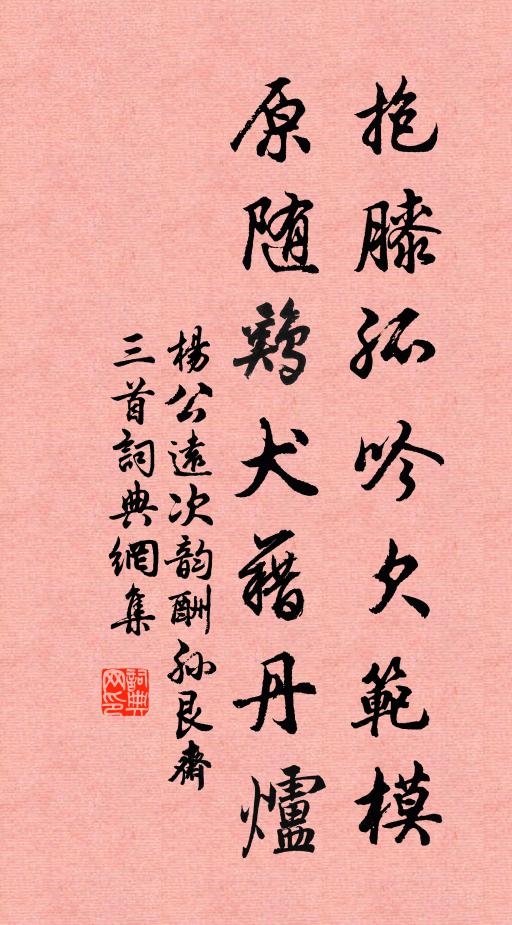 抱膝孤吟欠範模
原随鷄犬藉丹爐
楊公遠次韵酬孙艮齋
三首詞典網集
詞典网印